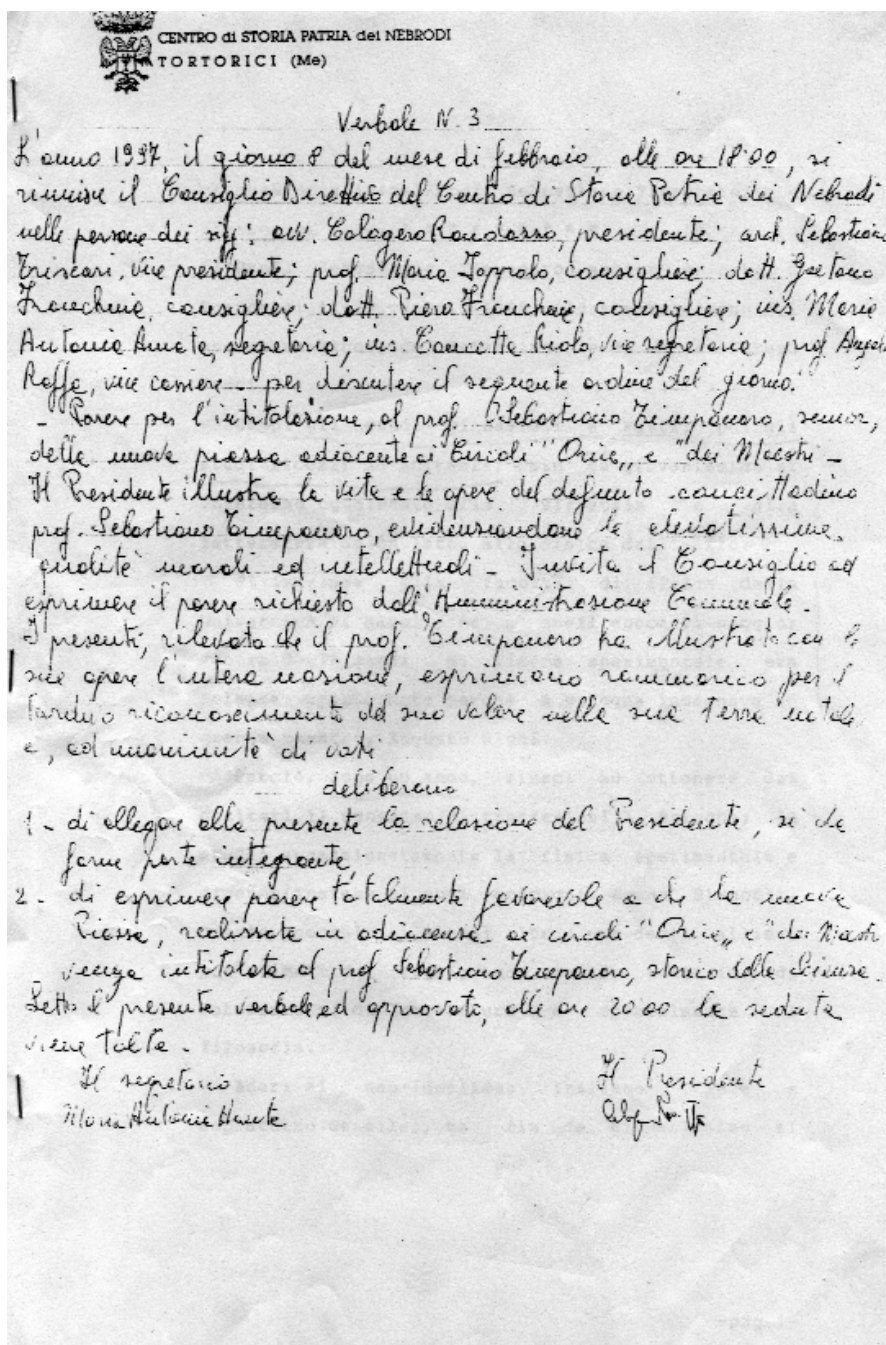 CENTRO di STORIA PATRIA dei NEBRODI
TORTORICI (Me)
Verbale N. 3
L'anno 1997, il giorno 8 del mese di febbraio, alle ore 18.00, si
riunisce il Consiglio Direttivo del Centro di Storia Patria dei Nebrodi
nelle persone dei sigg: avv. Calogero Randazzo, presidente; arch. Sebastiano
Triscari, vice presidente; prof. Maria Joppolo, consigliere; dott. Gaetano
Franchina, consigliere; dott. Piera Franchina, consigliere; ins. Maria
Antonia Amata, segretaria; ins. Concetta Riolo, vice segretaria; prof. Angela
Raffa, vice cassiere - per discutere il seguente ordine del giorno:
- Parere per l'intitolazione, al prof. Sebastiano Timpanaro, senior,
della nuova piazza adiacente ai Circoli "Orice„ e "dei Maestri -
Il Presidente illustra la vita e le opere del defunto concittadino
prof. Sebastiano Timpanaro, evidenziandone le elevatissime
qualità morali ed intellettuali - Invita il Consiglio ad
esprimere il parere richiesto dall'Amministrazione Comunale.
I presenti, rilevato che il prof. Timpanaro ha illustrato con le
sue opere l'intera nazione, esprimono rammarico per il
tardivo riconoscimento del suo valore nella sua terra natale
e, ad unanimità di voti
deliberano
1 - di allegare alla presente la relazione del Presidente, sì da
farne parte integrante;
2 - di esprimere parere totalmente favorevole a che la nuova
Piazza, realizzata in adiacenza ai circoli "Orice„ e "dei Maestri
venga intitolata al prof Sebastiano Timpanaro, storico della Scienza.
Letto il presente verbale, ed approvato, alle ore 20.00 la seduta
viene tolta.
Il segretario
Il Presidente
Maria Antonia Amata